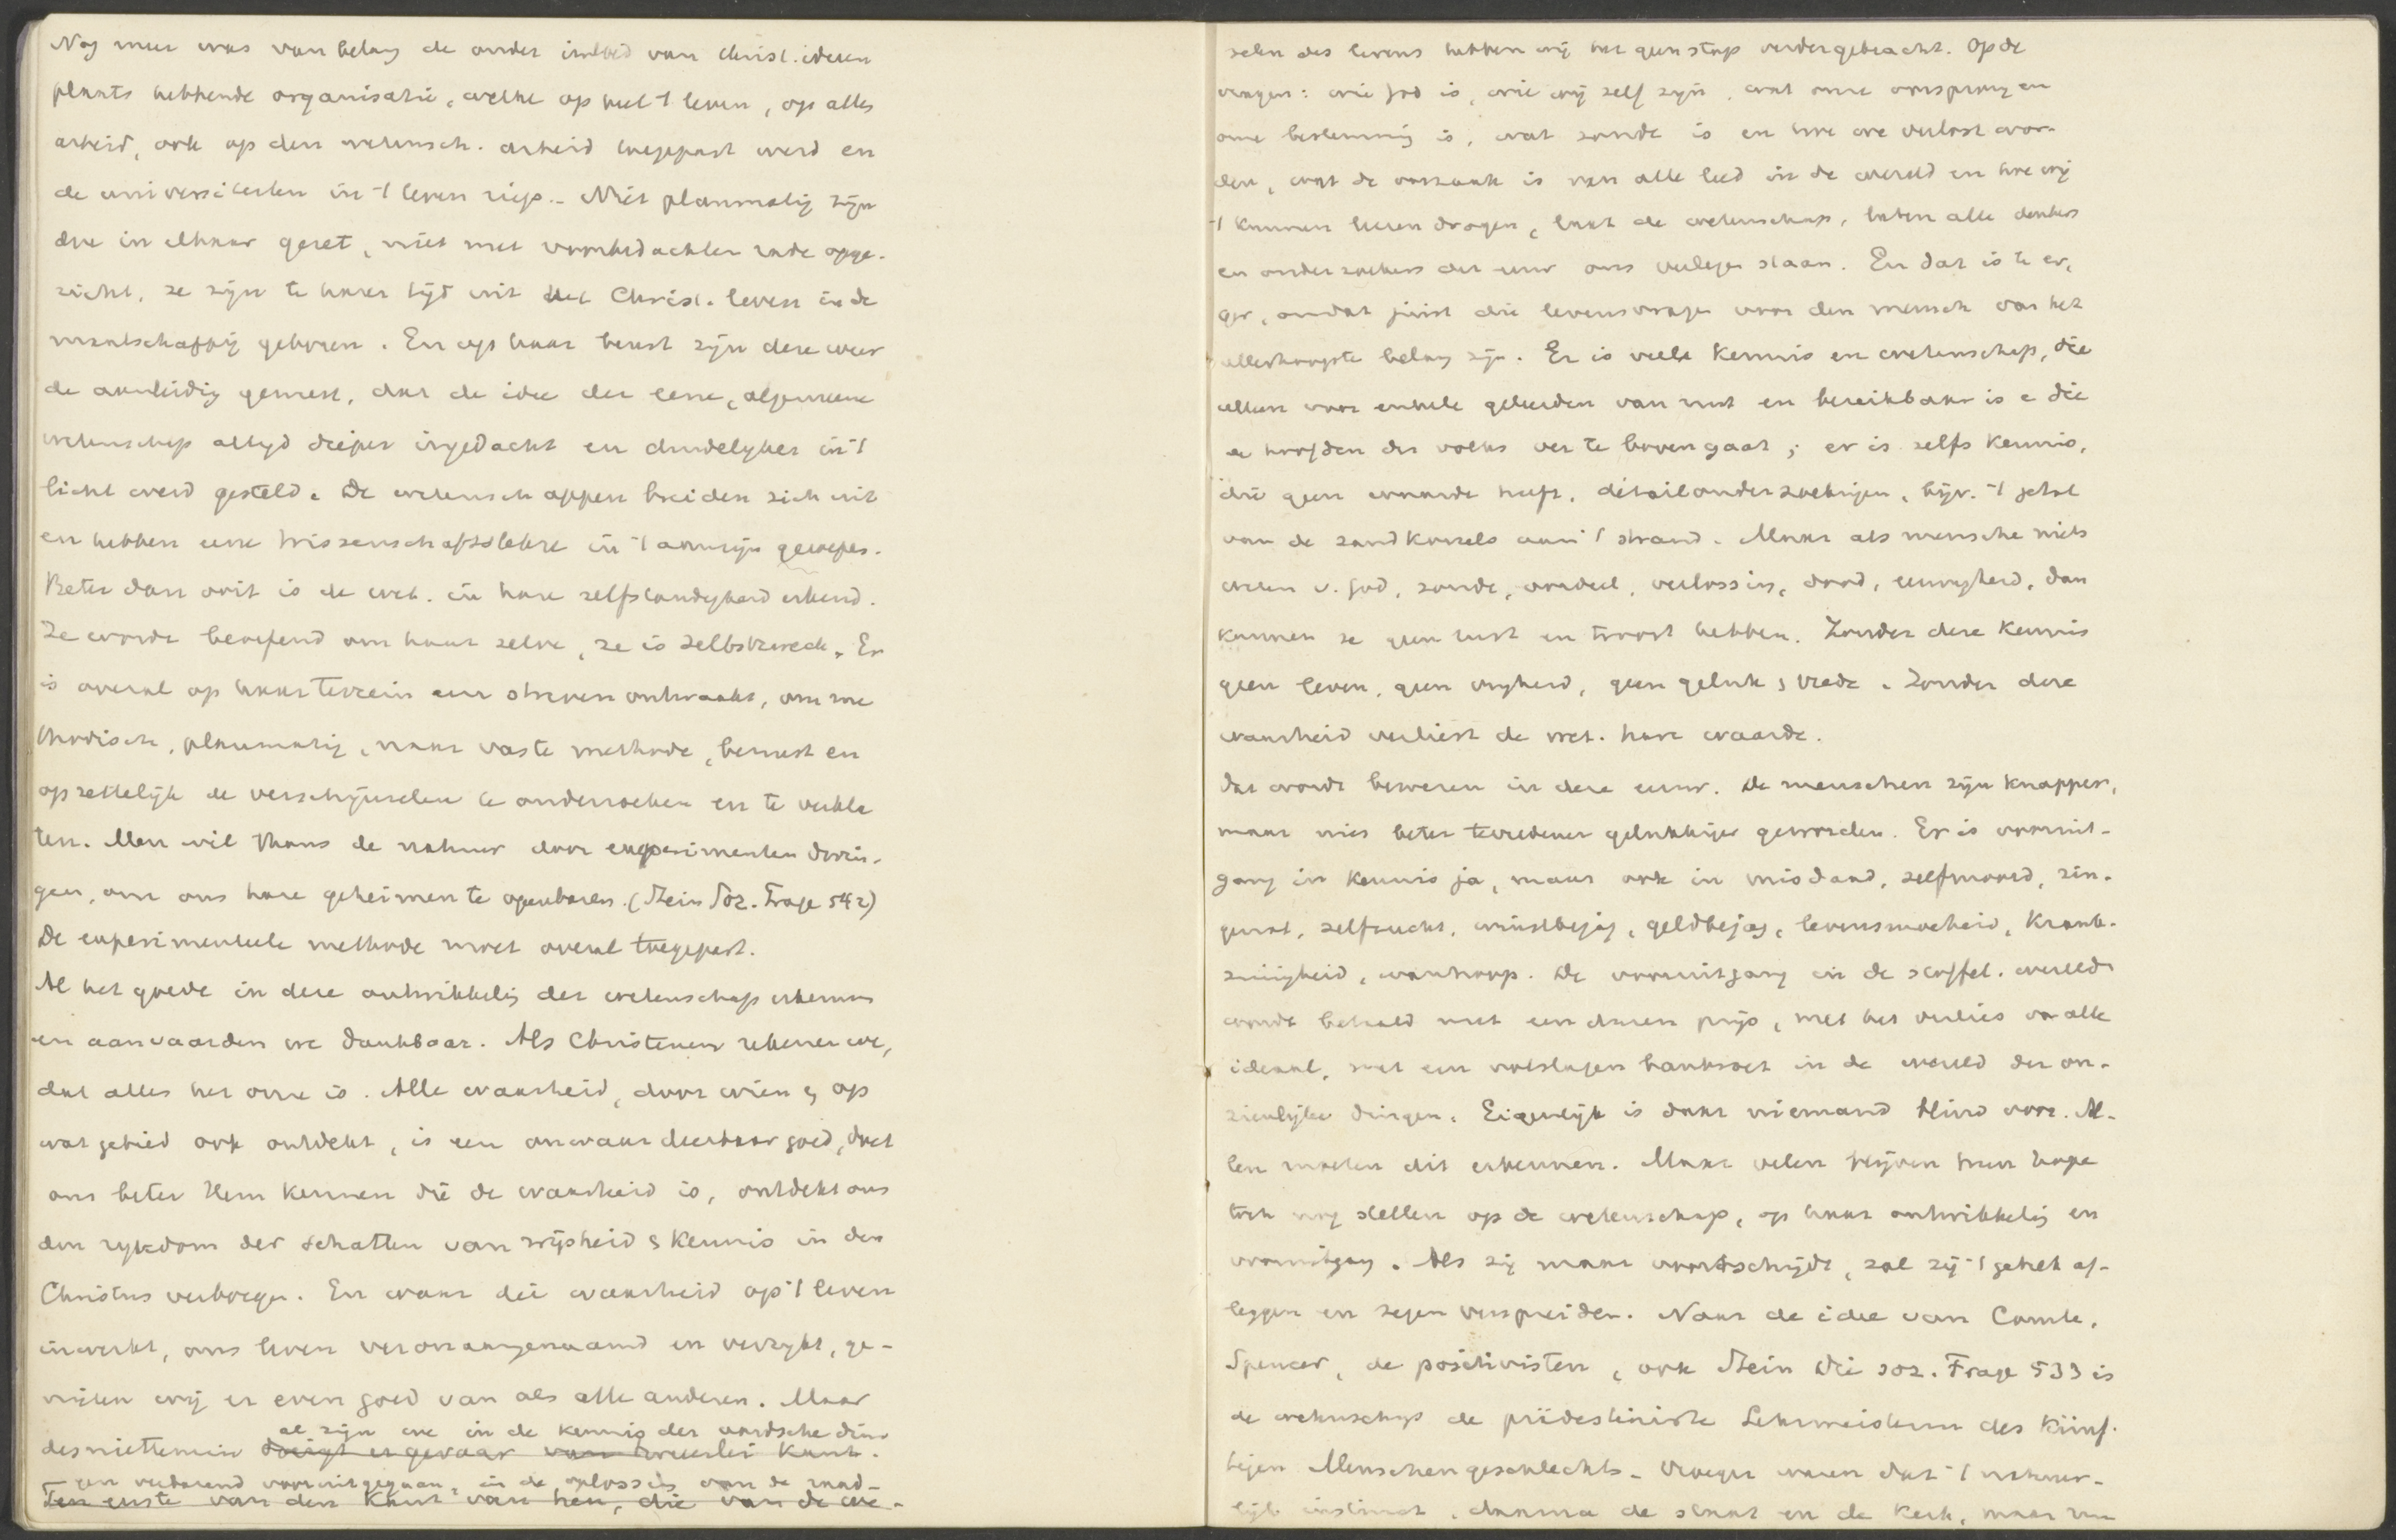 Nog meer was van belang de onder invloed van christ. ideeen
plaats hebbende organisatie, welke op heel 't leven, op alles
arbeid, ook op den wetensch. arbeid toegepast werd en
de universiteiten in 't leven riep. – Niet planmatig zijn
die in elkaar gezet, niet met voorbedachten rade opge-
richt, ze zijn te harer tijd uit het Christ. leven in de
maatschappij geboren. En op haar beurt zijn deze weer
de aanleidig geweest, dat de idee der eene, algemeene
wetenschap altijd dieper ingedacht en duidelyker in 't
licht werd gesteld. De wetenschappen breiden zich uit
en hebben eene Wissenschaftslehre in 't aanzijn geroepen.
Beter dan ooit is de wet. in hare zelfstandigheid erkend.
Ze wordt beoefend om haar zelve, ze is Selbstzweck. Er
is overal op haar terrein een streven ontwaakt, om me
thodisch, planmatig, naar vaste methode, bewust en
opzettelijk de verschijnselen te onderzoeken en te verkla
ren. Men wil thans de natuur door experimenten dwin-
gen, om ons hare geheimen te openbaren. (Stein Soz. Frage 542)
De experimenteele methode moet overal toegepast.
Al het goede in deze ontwikkelig der wetenschap erkennen
en aanvaarden we dankbaar. Als Christenen rekenen we,
dat alles het onze is. Alle waarheid, door wien & op
wat gebied ook ontdekt, is een onwaardeerbaar goed, doet
ons beter Hem kennen die de waarheid is, ontdekt ons
den rykdom der schatten van wijsheid & kennis in den
Christus verborgen. En waar die waarheid op 't leven
inwerkt, ons leven veraangenaamd en verrykt, ge-
nieten wij er even goed van als alle anderen. Maar
al zijn we in de kennis der aardsche din
desniettemin dreigt er gevaar van tweeerlei kant.
gen verbazend vooruitgegaan, in de oplossing van de raad-
Ten eerste van den kant van hen, die van de we-
selen des levens hebben wij het geen stap verder gebracht. Op de
vragen: wie God is, wie wij zelf zijn, wat onze oorsprong en
onze bestemming is, wat zonde is en hoe we verlost wor-
den, wat de oorzaak is van alle leed in de wereld en hoe wij
't kunnen leeren dragen, laat de wetenschap, laten alle denkers
en onderzoekers der eeuw ons verlegen staan. En dat is te er-
ger, omdat juist die levensvragen voor den mensch van het
allerhoogste belang zijn. Er is veele kennis en wetenschap, die
alleen voor enkele geleerden van nut en bereikbaar is & die
de hoofden des volks ver te boven gaat; er is zelfs kennis,
die geen waarde heeft, détailonderzoekingen, bijv. 't getal
van de zandkorrels aan 't strand. Maar als menschen niets
weten v. God, zonde, oordeel, verlossing, dood, eeuwigheid, dan
kunnen ze geen rust en troost hebben. Zonder deze kennis
geen leven, geen vryheid, geen geluk & vrede. Zonder deze
waarheid verliest de wet. hare waarde.
Dat wordt bewezen in deze eeuw. De menschen zijn knapper,
maar niet beter tevredener gelukkiger geworden. Er is vooruit-
gang in kennis ja, maar ook in misdaad, zelfmoord, zin-
genot, zelfzucht, winstbejag, geldbejag, levensmoeheid, krank-
zinnigheid, wanhoop. De vooruitgang in de stoffel. wereld
wordt betaald met een duren prijs, met het verlies van alle
ideaal, met een volslagen bankroet in de wereld der on-
zienlijke dingen. Eigenlijk is daar niemand blind voor. Al-
len moeten dit erkennen. Maar velen blijven hun hope
toch nog stellen op de wetenschap, op haar ontwikkelig en
vooruitgang. Als zij maar voortschrijdt, zal zij 't gebrek af-
leggen en zegen verspreiden. Naar de idee van Comte,
Spencer, de positivisten, ook Stein Die soz. Frage 533 is
de wetenschap de prädestinirte Lehrmeisterin des künf-
tigen Menschengeschlechts. Vroeger waren dat 't natuur-
lijk instinct, daarna de staat en de kerk, maar nu